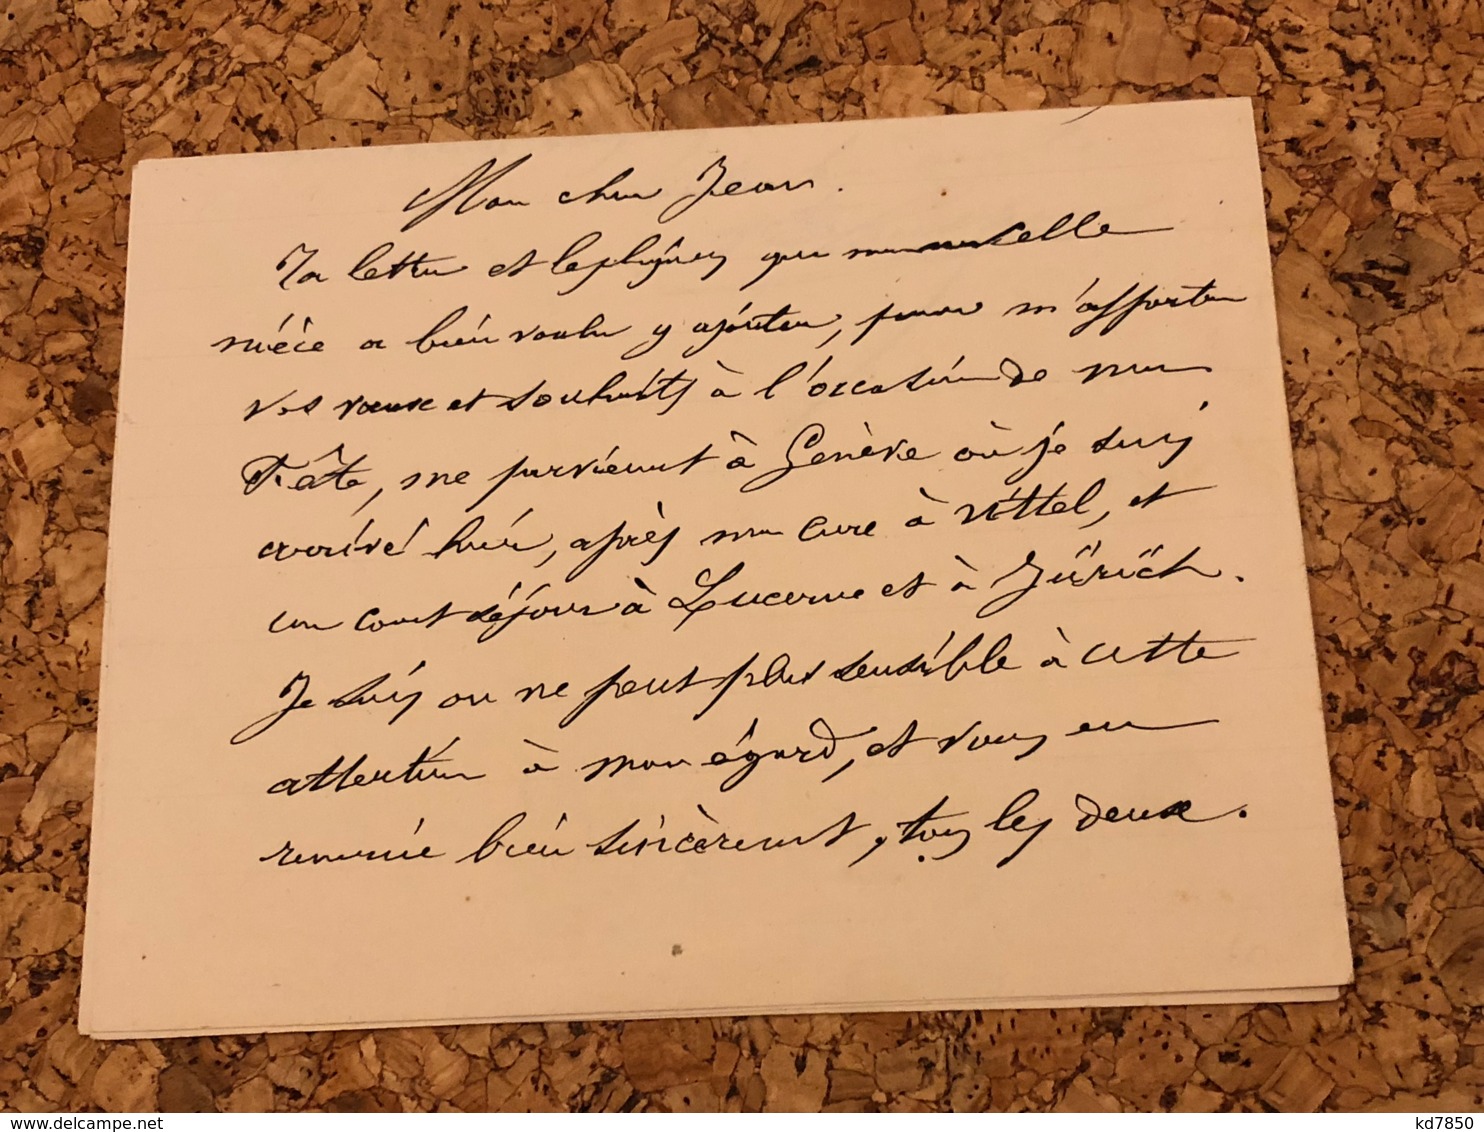 Mon cher Jean.
Ta lettre et les lignes que ma nouvelle
nièce a bien voulu y ajouter, pour m'apporter
vos vœux et souhaits à l'occasion de ma
Fête, me parvient à Genève où je suis
arrivé hier, après ma cure à Vittel, et
un court séjour à Lucerne et à Zürich.
Je suis on ne peut plus sensible à cette
attention à mon égard, et vous en
remercie bien sincèrement, tous les deux.
delcampe.net
kd7850